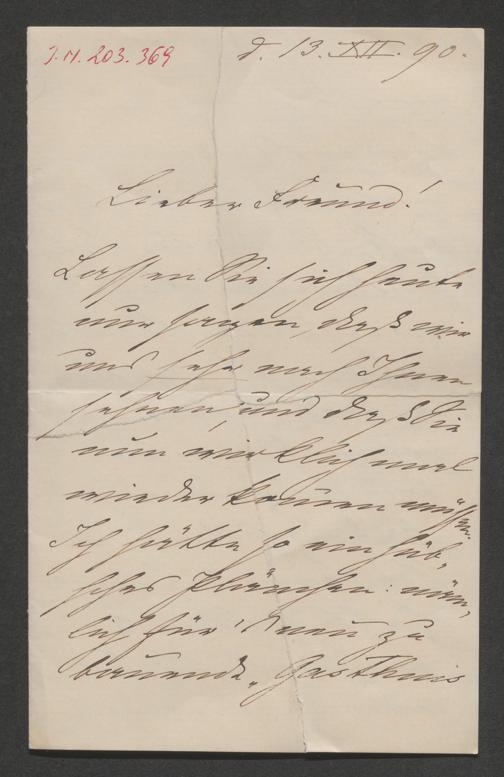 J.N. 203.369
d. 13. XII. 90.
Lieber Freund!
Lassen Sie sich heute
nur sagen, daß wir
uns sehr nach Ihnen
sehnen, und daß Sie
nun wirklich mal
wieder kommen müssen.
Ich hätte so ein hüb-
sches Plänchen: näm-
lich für's neu zu
bauende „Gasthaus